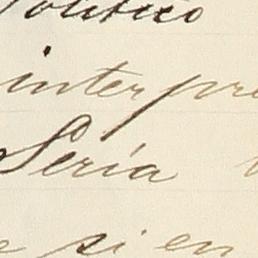 Politico
interpre
Seria
si en